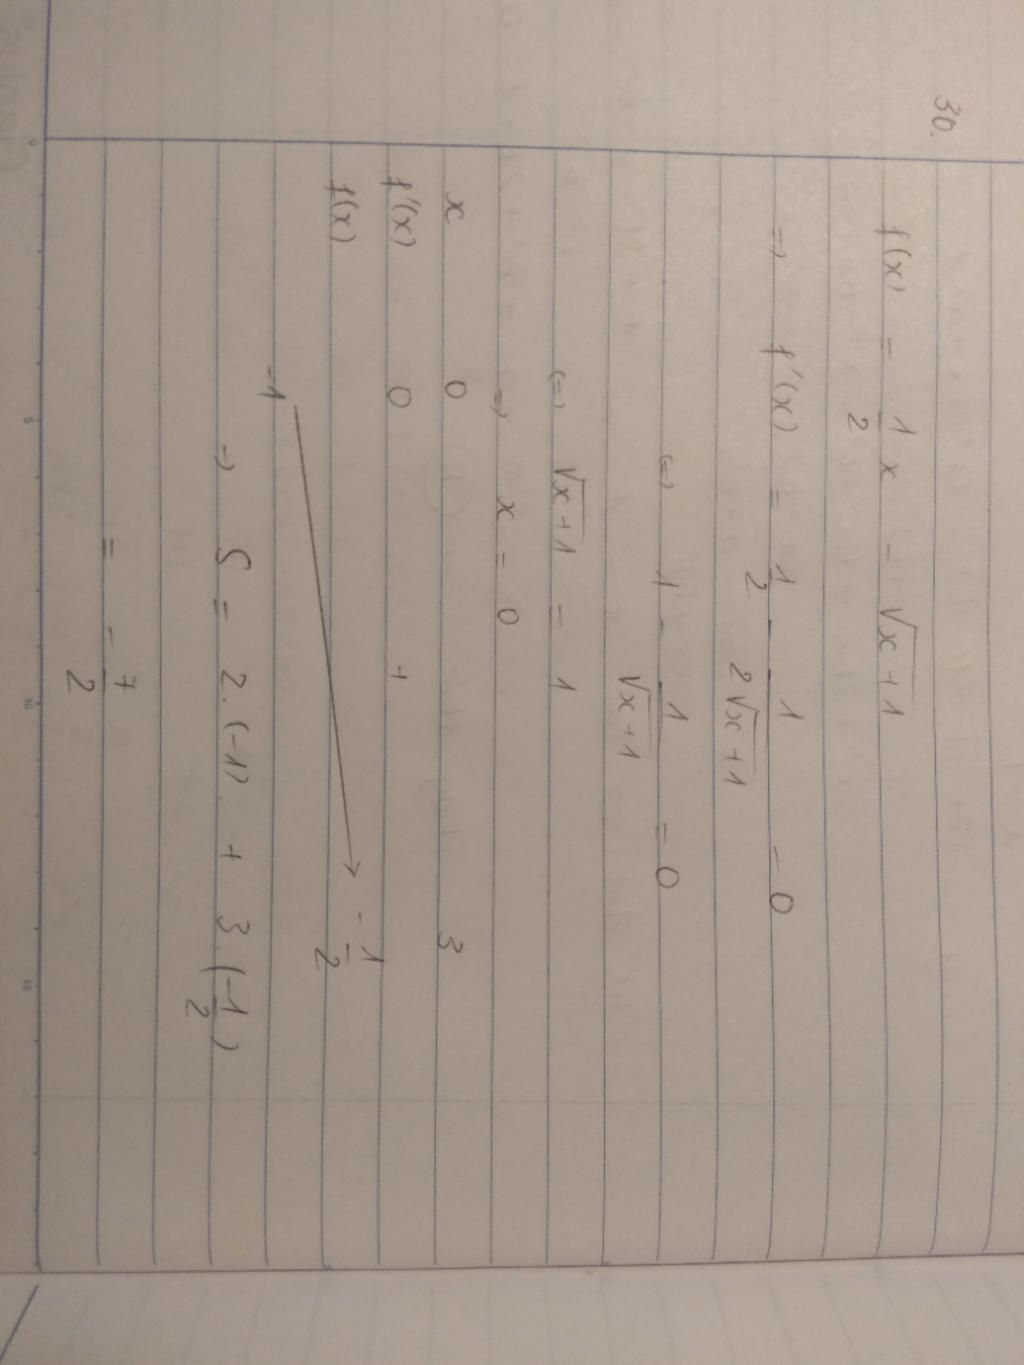 30.
f(x) = 1/2 x - √(x+1)
=> f'(x) = 1/2 - 1/(2√(x+1)) = 0
<=> 1 - 1/√(x+1) = 0
<=> √(x+1) = 1
=> x = 0
x 0 3
f'(x) 0 +
f(x) -1 -1/2
=> S = 2.(-1) + 3.(-1/2)
= -7/2
0 5 10 15